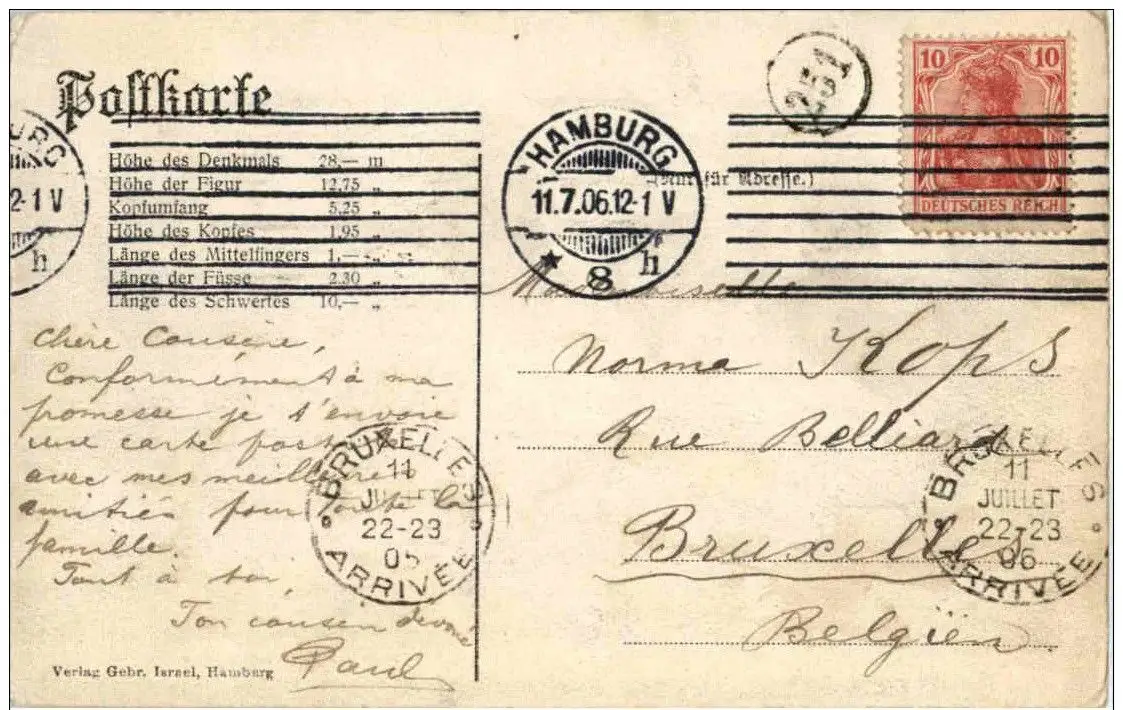 Postkarte
251
10 10
DEUTSCHES REICH
HAMBURG
11.7.06.12-1 V
* 8 h
URG
2-1 V
h
(Nur für Adresse.)
Höhe des Denkmals 28,— m
Höhe der Figur 12,75 „
Kopfumfang 5,25 „
Höhe des Kopfes 1,95 „
Länge des Mittelfingers 1,— „
Länge der Füsse 2.30 „
Länge des Schwertes 10,— „
Chère Cousine,
Conformément à ma
promesse je t'envoie
une carte postale
avec mes meilleures
amitiés pour toute la
famille.
Tout à toi,
Ton cousin dévoué
Paul
Verlag Gebr. Israel, Hamburg
Mademoiselle
Norma Kops
Rue Belliard
Bruxelles
Belgïen
BRUXELLES
11
JUILLET
22-23
06
ARRIVÉE
BRUXELLES
11
JUILLET
22-23
06
ARRIVÉE